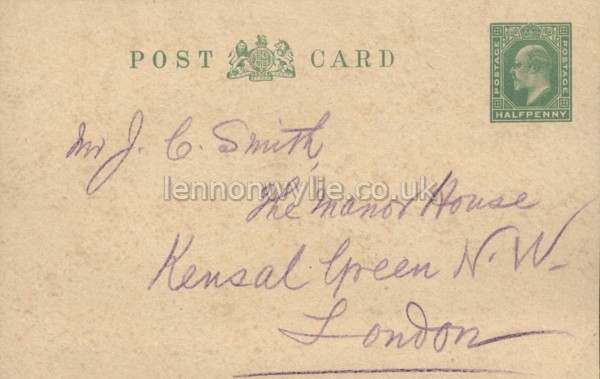 POST CARD
POSTAGE
POSTAGE
HALFPENNY
Mr J. C. Smith,
lennonwylie.co.uk
The Manor House
Kensal Green N.W.
London